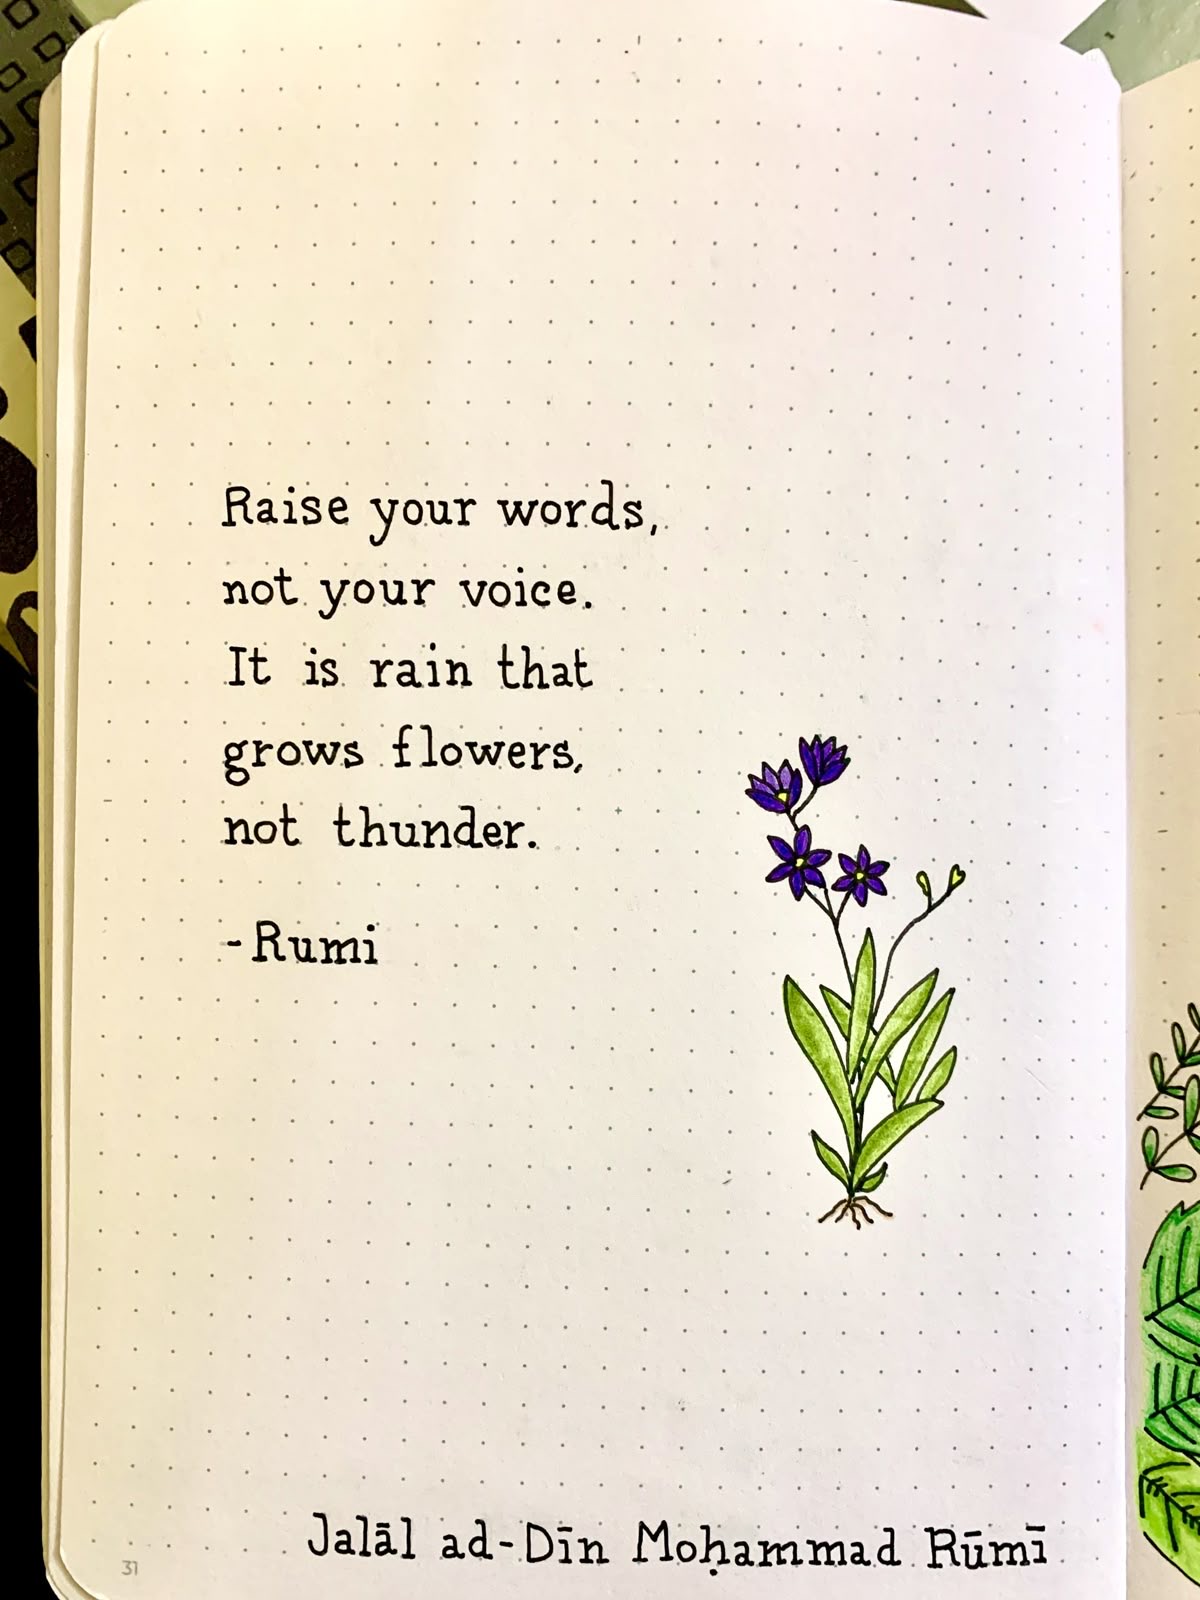 Raise your words,
not your voice.
It is rain that
grows flowers,
not thunder.
-Rumi
Jalāl ad-Dīn Moḥammad Rūmī
31